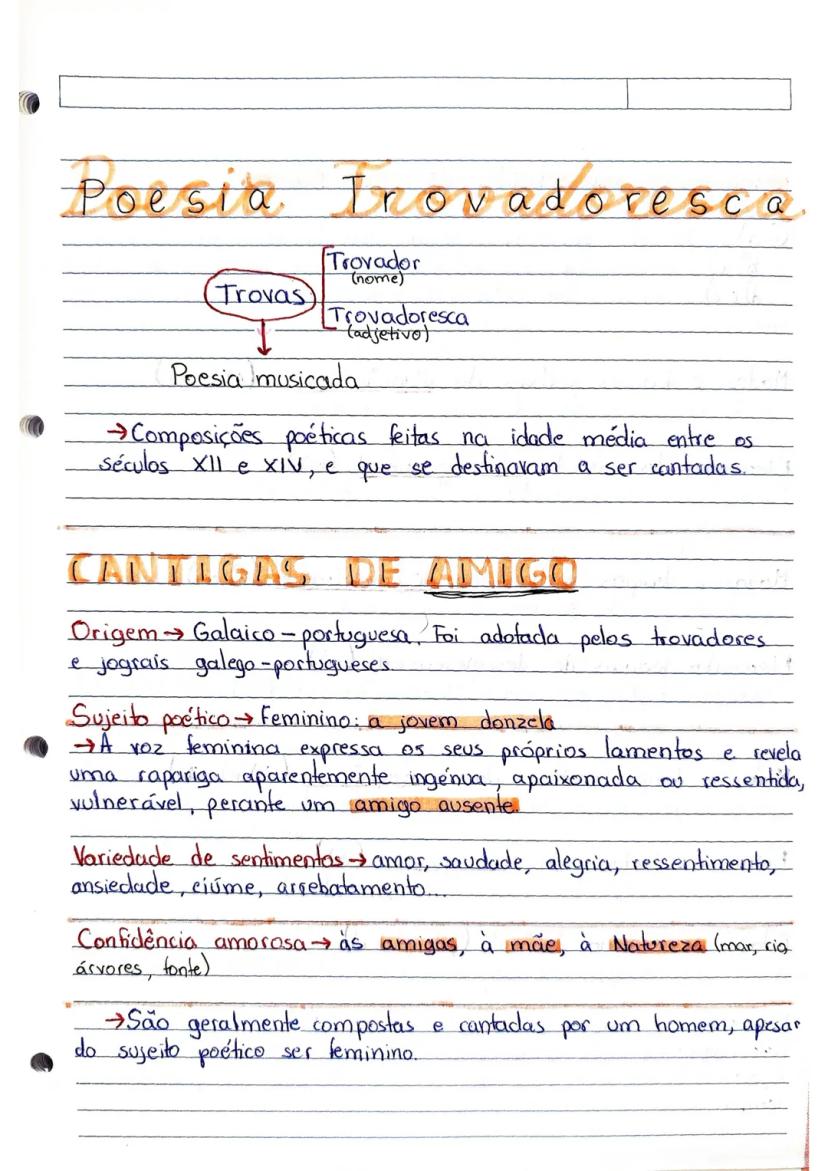 Poesia Trovadoresca
Trovador
(nome)
Trovas
Trovadoresca
(adjetivo)
Poesia musicada
→Composições poéticas feitas na idade média entre os
séculos XII e XIV, e que se destinavam a ser cantadas.
CANTIGAS DE AMIGO
Origem → Galaico-portuguesa. Foi adotada pelos trovadores
e jograis galego-portugueses
Sujeito poético → Feminino: a jovem donzela
→A voz feminina expressa os seus próprios lamentos e revela
uma rapariga aparentemente ingénua, apaixonada ou ressentida,
vulnerável, perante um amigo ausente.
Variedade de sentimentos → amor, saudade, alegria, ressentimento,
ansiedade, ciúme, arrebatamento...
Confidência amorosa → às amigas, à mãe, à Natureza (mar, rio,
árvores, fonte)
→São geralmente compostas e cantadas por um homem, apesar
do sujeito poético ser feminino.